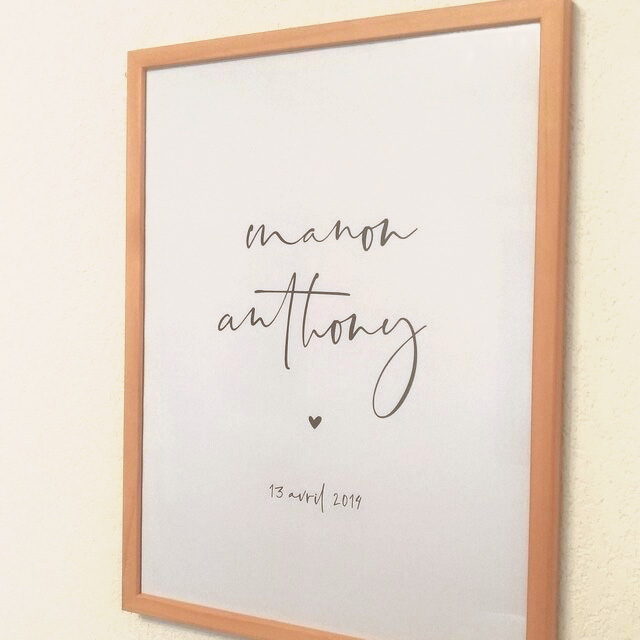 manon
anthony
13 avril 2019